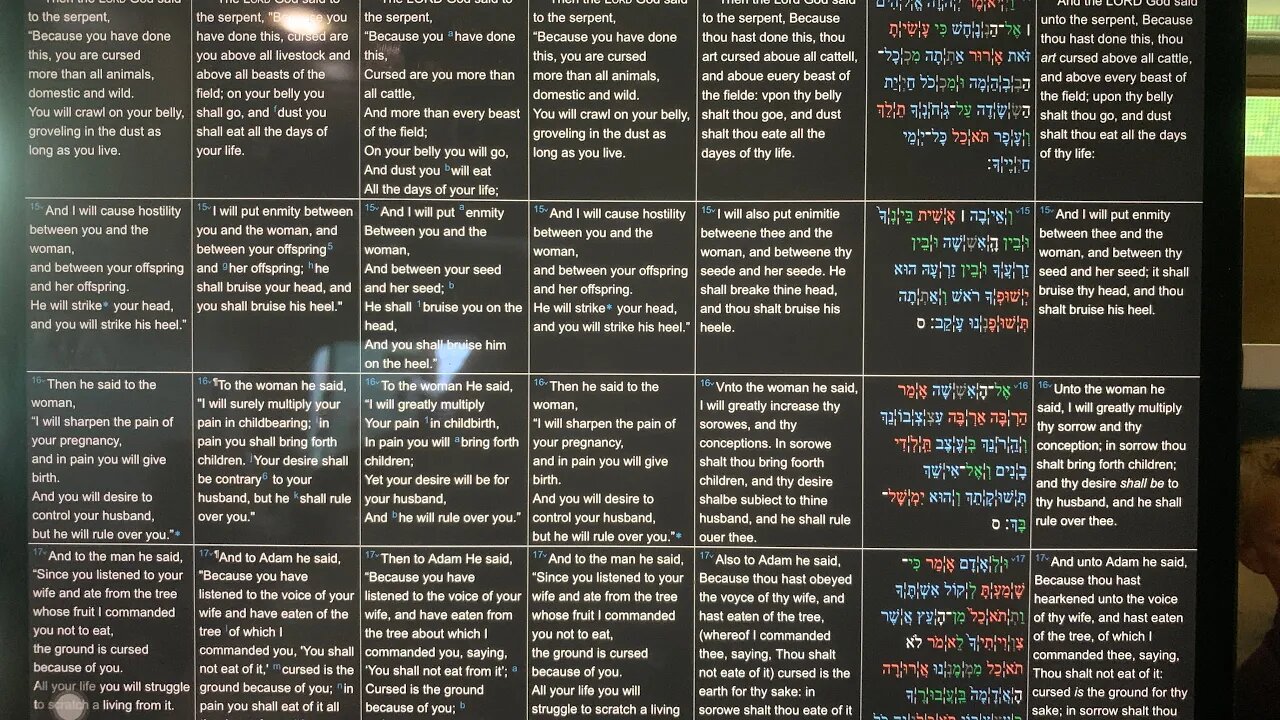 Then the LORD God said to
the serpent,
“Because you have done
this, you are cursed
more than all animals,
domestic and wild.
You will crawl on your belly,
groveling in the dust as
long as you live.
15 And I will cause hostility
between you and the
woman,
and between your offspring
and her offspring.
He will strike* your head,
and you will strike his heel.”
16 Then he said to the
woman,
“I will sharpen the pain of
your pregnancy,
and in pain you will give
birth.
And you will desire to
control your husband,
but he will rule over you.”*
17 And to the man he said,
“Since you listened to your
wife and ate from the tree
whose fruit I commanded
you not to eat,
the ground is cursed
because of you.
All your life you will struggle
to scratch a living from it.
The LORD God said to
the serpent, "Because you
have done this, cursed are
you above all livestock and
above all beasts of the
field; on your belly you
shall go, and f dust you
shall eat all the days of
your life.
15 I will put enmity between
you and the woman, and
between your offspring5
and g her offspring; h he
shall bruise your head, and
you shall bruise his heel."
16 ¶To the woman he said,
"I will surely multiply your
pain in childbearing; i in
pain you shall bring forth
children. j Your desire shall
be contrary6 to your
husband, but he k shall rule
over you."
17 ¶And to Adam he said,
"Because you have
listened to the voice of your
wife and have eaten of the
tree l of which I
commanded you, 'You shall
not eat of it,' m cursed is the
ground because of you; n in
pain you shall eat of it all
The LORD God said to
the serpent,
“Because you a have done
this,
Cursed are you more than
all cattle,
And more than every beast
of the field;
On your belly you will go,
And dust you b will eat
All the days of your life;
15 And I will put a enmity
Between you and the
woman,
And between your seed
and her seed; b
He shall 1 bruise you on the
head,
And you shall bruise him
on the heel.”
16 To the woman He said,
“I will greatly multiply
Your pain 1 in childbirth,
In pain you will a bring forth
children;
Yet your desire will be for
your husband,
And b he will rule over you.”
17 Then to Adam He said,
“Because you have
listened to the voice of your
wife, and have eaten from
the tree about which I
commanded you, saying,
‘You shall not eat from it’; a
Cursed is the ground
because of you; b
Then the LORD God said to
the serpent,
“Because you have done
this, you are cursed
more than all animals,
domestic and wild.
You will crawl on your belly,
groveling in the dust as
long as you live.
15 And I will cause hostility
between you and the
woman,
and between your offspring
and her offspring.
He will strike* your head,
and you will strike his heel.”
16 Then he said to the
woman,
“I will sharpen the pain of
your pregnancy,
and in pain you will give
birth.
And you will desire to
control your husband,
but he will rule over you.”*
17 And to the man he said,
“Since you listened to your
wife and ate from the tree
whose fruit I commanded
you not to eat,
the ground is cursed
because of you.
All your life you will
struggle to scratch a living
Then the Lord God said
to the serpent, Because
thou hast done this, thou
art cursed aboue all cattell,
and aboue euery beast of
the fielde: vpon thy belly
shalt thou goe, and dust
shalt thou eate all the
dayes of thy life.
15 I will also put enimitie
betweene thee and the
woman, and betweene thy
seede and her seede. He
shall breake thine head,
and thou shalt bruise his
heele.
16 Vnto the woman he said,
I will greatly increase thy
sorowes, and thy
conceptions. In sorowe
shalt thou bring foorth
children, and thy desire
shalbe subiect to thine
husband, and he shall rule
ouer thee.
17 Also to Adam he said,
Because thou hast obeyed
the voyce of thy wife, and
hast eaten of the tree,
(whereof I commanded
thee, saying, Thou shalt
not eate of it) cursed is the
earth for thy sake: in
sorowe shalt thou eate of it
וַיֹּאמֶר יְהוָה אֱלֹהִים
׀ אֶל־הַנָּחָשׁ כִּי עָשִׂיתָ
זֹּאת אָרוּר אַתָּה מִכָּל־
הַבְּהֵמָה וּמִכֹּל חַיַּת
הַשָּׂדֶה עַל־גְּחֹנְךָ תֵלֵךְ
וְעָפָר תֹּאכַל כָּל־יְמֵי
חַיֶּיךָ׃
15 וְאֵיבָה ׀ אָשִׁית בֵּינְךָ
וּבֵין הָאִשָּׁה וּבֵין
זַרְעֲךָ וּבֵין זַרְעָהּ הוּא
יְשׁוּפְךָ רֹאשׁ וְאַתָּה
תְּשׁוּפֶנּוּ עָקֵב׃ ס
16 אֶל־הָאִשָּׁה אָמַר
הַרְבָּה אַרְבֶּה עִצְּבוֹנֵךְ
וְהֵרֹנֵךְ בְּעֶצֶב תֵּלְדִי
בָנִים וְאֶל־אִישֵׁךְ
תְּשׁוּקָתֵךְ וְהוּא יִמְשָׁל־
בָּךְ׃ ס
17 וּלְאָדָם אָמַר כִּי־
שָׁמַעְתָּ לְקוֹל אִשְׁתֶּךָ
וַתֹּאכַל מִן־הָעֵץ אֲשֶׁר
צִוִּיתִיךָ לֵאמֹר לֹא
תֹאכַל מִמֶּנּוּ אֲרוּרָה
הָאֲדָמָה בַּעֲבוּרֶךָ
And the LORD God said
unto the serpent, Because
thou hast done this, thou
art cursed above all cattle,
and above every beast of
the field; upon thy belly
shalt thou go, and dust
shalt thou eat all the days
of thy life:
15 And I will put enmity
between thee and the
woman, and between thy
seed and her seed; it shall
bruise thy head, and thou
shalt bruise his heel.
16 Unto the woman he
said, I will greatly multiply
thy sorrow and thy
conception; in sorrow thou
shalt bring forth children;
and thy desire shall be to
thy husband, and he shall
rule over thee.
17 And unto Adam he said,
Because thou hast
hearkened unto the voice
of thy wife, and hast eaten
of the tree, of which I
commanded thee, saying,
Thou shalt not eat of it:
cursed is the ground for thy
sake; in sorrow shalt thou